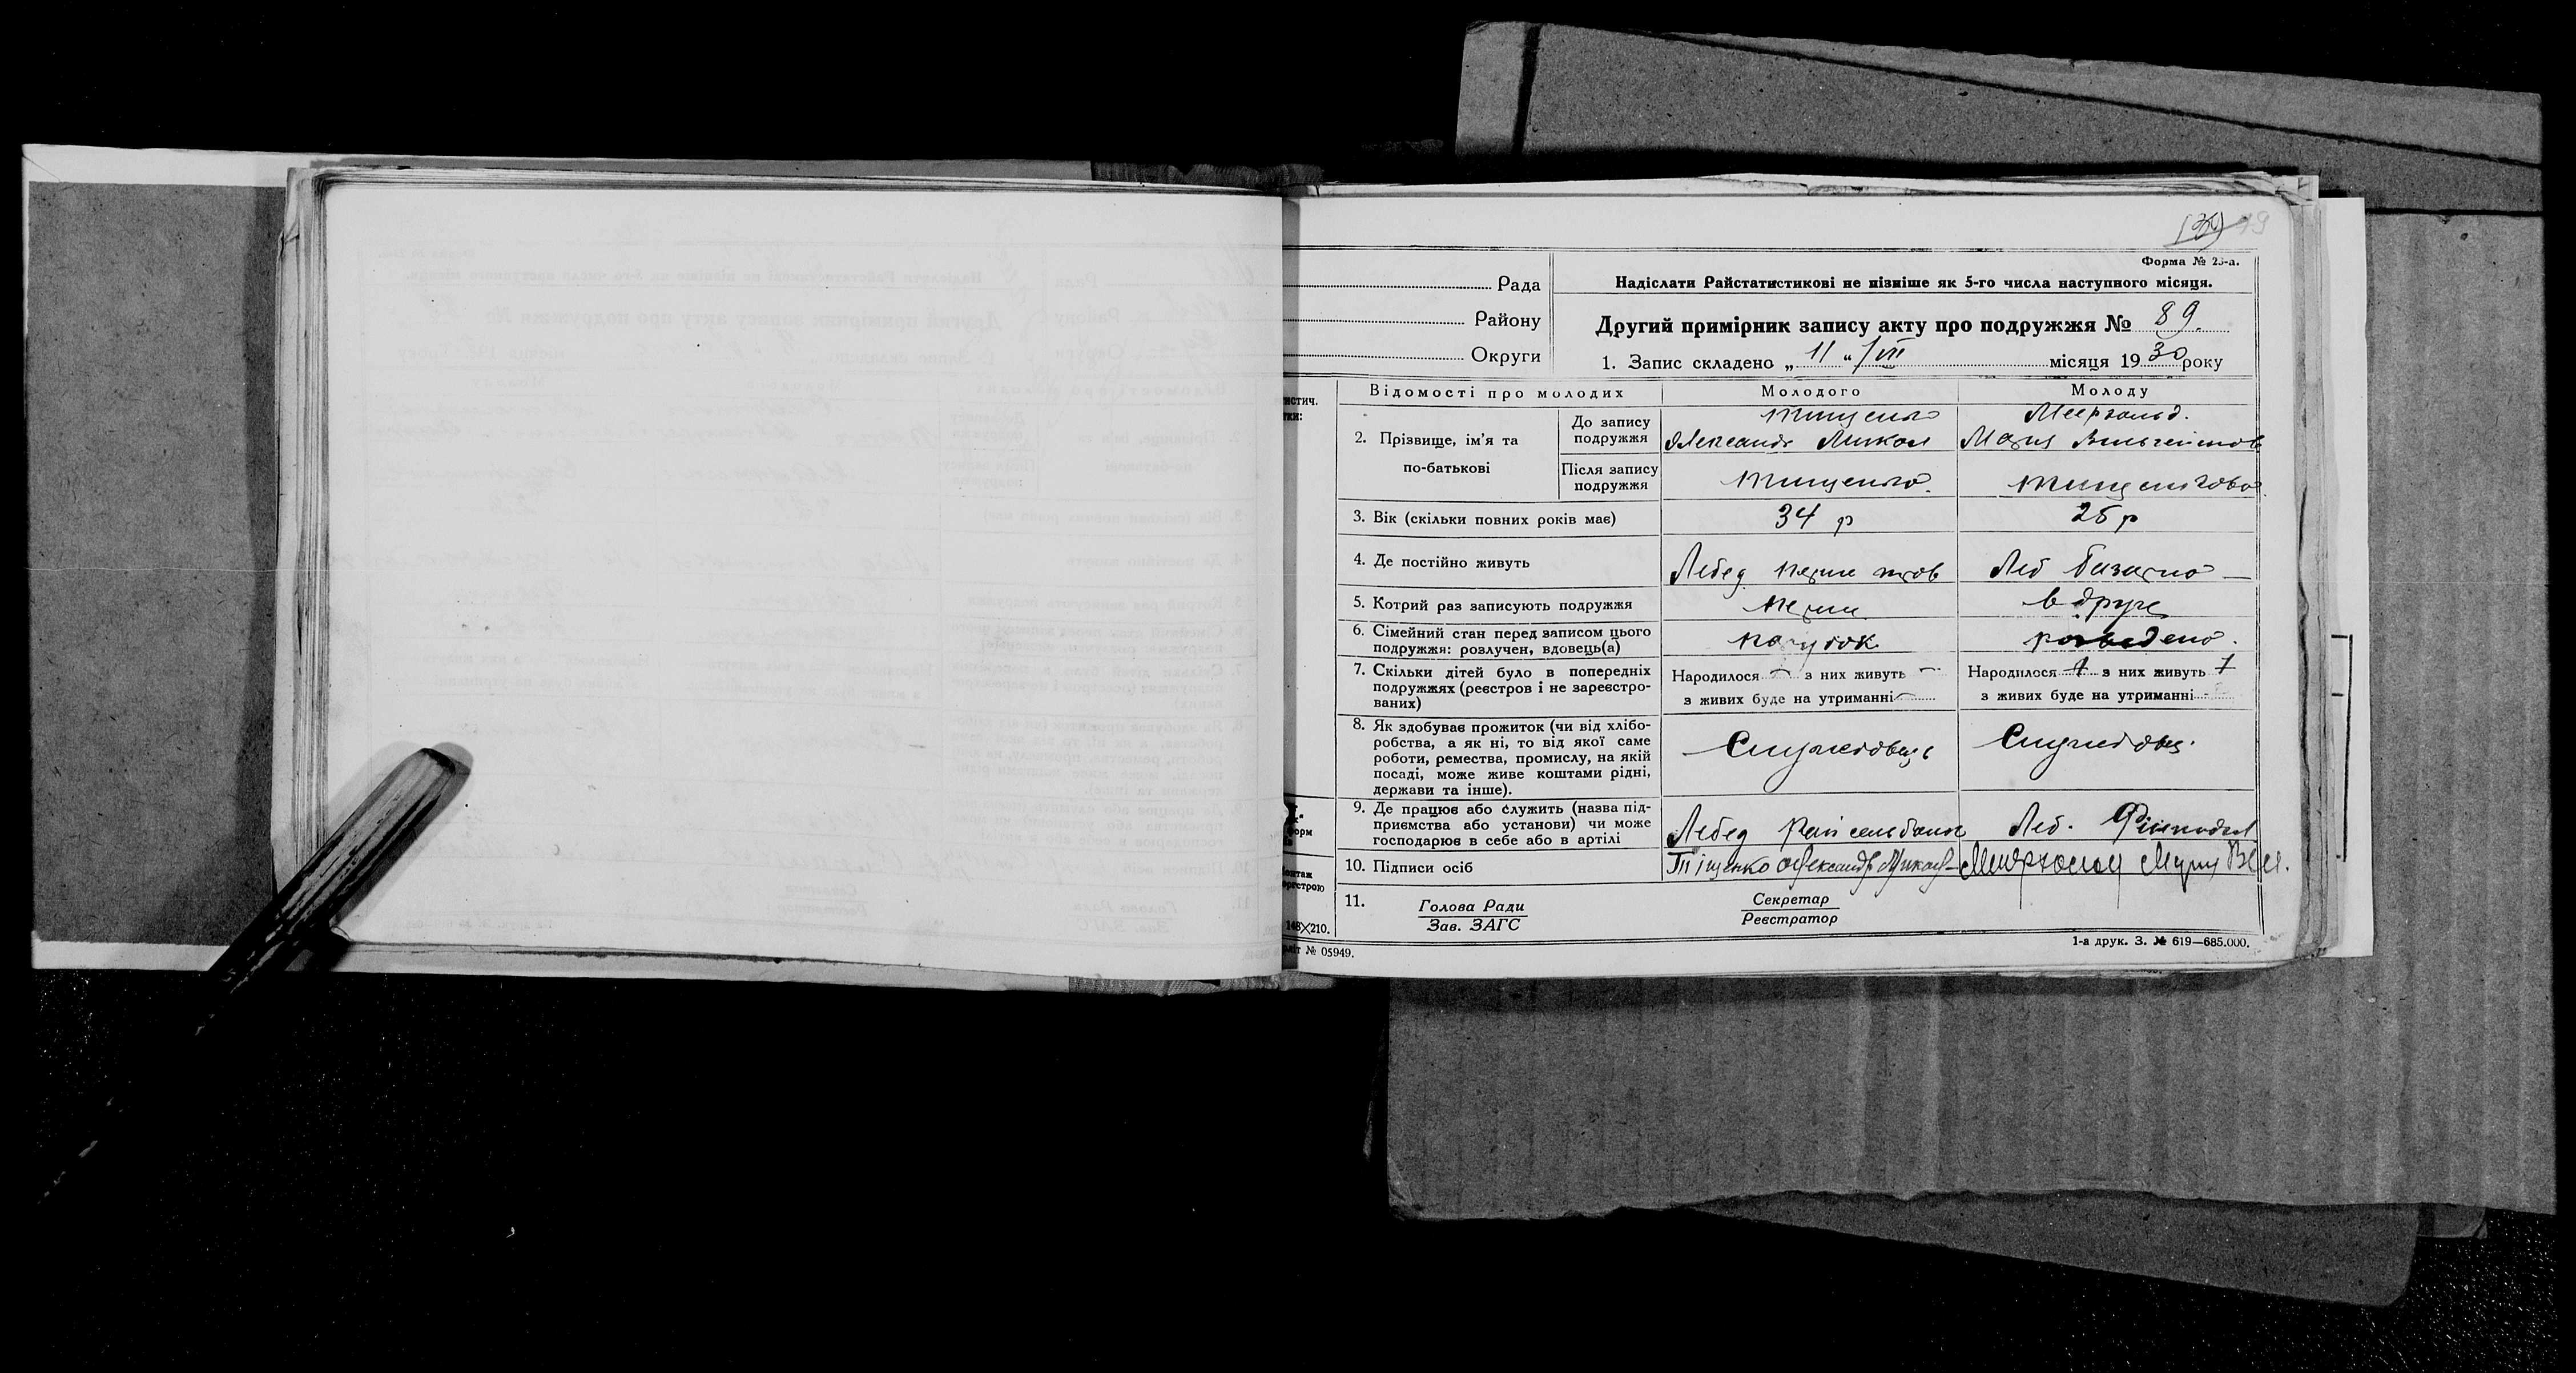 19
Форма № 25-а.
Рада
Району
Округи
Надіслати Райстатистикові не пізніше як 5-го числа наступного місяця.
Другий примірник запису акту про подружжя № 89.
1. Запис складено „ 11 “ / VII місяця 1930 року
Відомості про молодих
Молодого
Молоду
2. Прізвище, ім'я та по-батькові
До запису подружжя
Тищенко
Александр Микол
Меергольд.
Мария Вильгельмов
Після запису подружжя
Тищенко.
Тищенкова
3. Вік (скільки повних років має)
34 р
25 р
4. Де постійно живуть
Лебед
Леб Базарно
5. Котрий раз записують подружжя
перше
в друге
6. Сімейний стан перед записом цього
подружжя: розлучен, вдовець(а)
парубок
розведено.
7. Скільки дітей було в попередніх
подружжях (реєстров і не зареєстро-
ваних)
Народилося — з них живуть —
з живих буде на утриманні —
Народилося 1 з них живуть 1
з живих буде на утриманні
8. Як здобуває прожиток (чи від хлібо-
робства, а як ні, то від якої саме
роботи, ремества, промислу, на якій
посаді, може живе коштами рідні,
держави та інше).
Служтовець
Служтовец.
9. Де працює або служить (назва під-
приємства або установи) чи може
господарює в себе або в артілі
Лебед Райсельбанк
Леб.
10. Підписи осіб
Тіщенко Олександр Микол
11.
Голова Ради
Зав. ЗАГС
Секретар
Реєстратор
148×210.
№ 05949.
1-а друк. З. № 619—685.000.